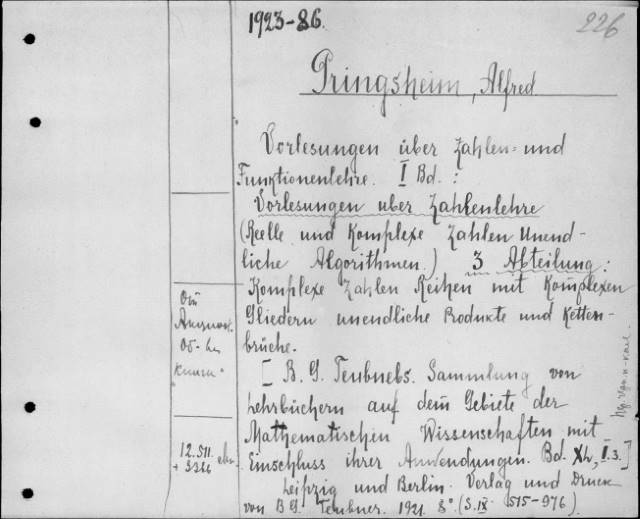 1923-86.
226
Pringsheim, Alfred
Vorlesungen über Zahlen- und
Funktionenlehre. I Bd. :
Vorlesungen uber Zahlenlehre
(Reelle und Komplexe Zahlen Unend-
liche Algorithmen.) 3 Abteilung:
Komplexe Zahlen Reihen mit Komplexen
Gliedern unendliche Produkte und Ketten-
brüche.
[ B. G. Teubnebs. Sammlung von
Lehrbüchern auf dem Gebiete der
Mathematischen Wissenschaften mit
Einschluss ihrer Anwendungen. Bd. XL, I.3.]
Leipzig und Berlin. Verlag und Druck
von B G. Teubner. 1921. 8° (S. IX 515-976).
книги
12.511